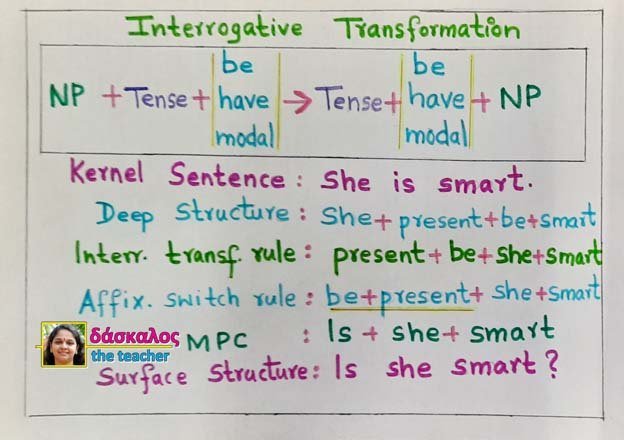 Interrogative Transformation
be be
NP + Tense + have → Tense + have + NP
modal modal
Kernel Sentence : She is smart.
Deep Structure : She + present + be + smart
Interr. transf. rule : present + be + she + smart
Affix. switch rule : be + present + she + smart
δάσκαλος
the teacher
MPC : Is + she + smart
Surface Structure : Is she smart ?